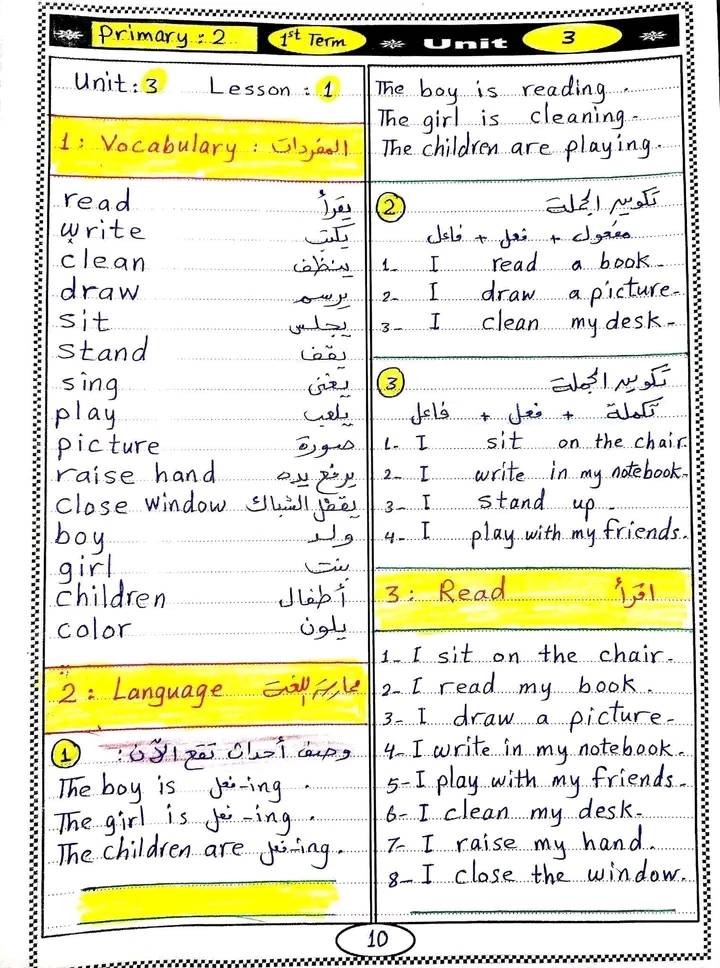 Primary : 2 1st Term Unit 3
Unit : 3 Lesson : 1
1 : Vocabulary : المفردات
read يقرأ
write يكتب
clean ينظف
draw يرسم
sit يجلس
stand يقف
sing يغنى
play يلعب
picture صورة
raise hand يرفع يده
close window يقفل الشباك
boy ولد
girl بنت
children أطفال
color يلون
2 : Language ممارسة اللغة
1 وصف أحداث تقع الآن :
The boy is فعل-ing .
The girl is فعل-ing .
The children are فعل-ing .
The boy is reading .
The girl is cleaning .
The children are playing .
2 تكوين الجملة
مفعول + فعل + فاعل
1- I read a book .
2- I draw a picture .
3- I clean my desk .
3 تكوين الجملة
فاعل + فعل + تكملة
1- I sit on the chair.
2- I write in my notebook.
3- I stand up .
4- I play with my friends.
3 : Read اقرأ
1- I sit on the chair .
2- I read my book .
3- I draw a picture .
4- I write in my notebook .
5- I play with my friends .
6- I clean my desk .
7- I raise my hand .
8- I close the window .
10